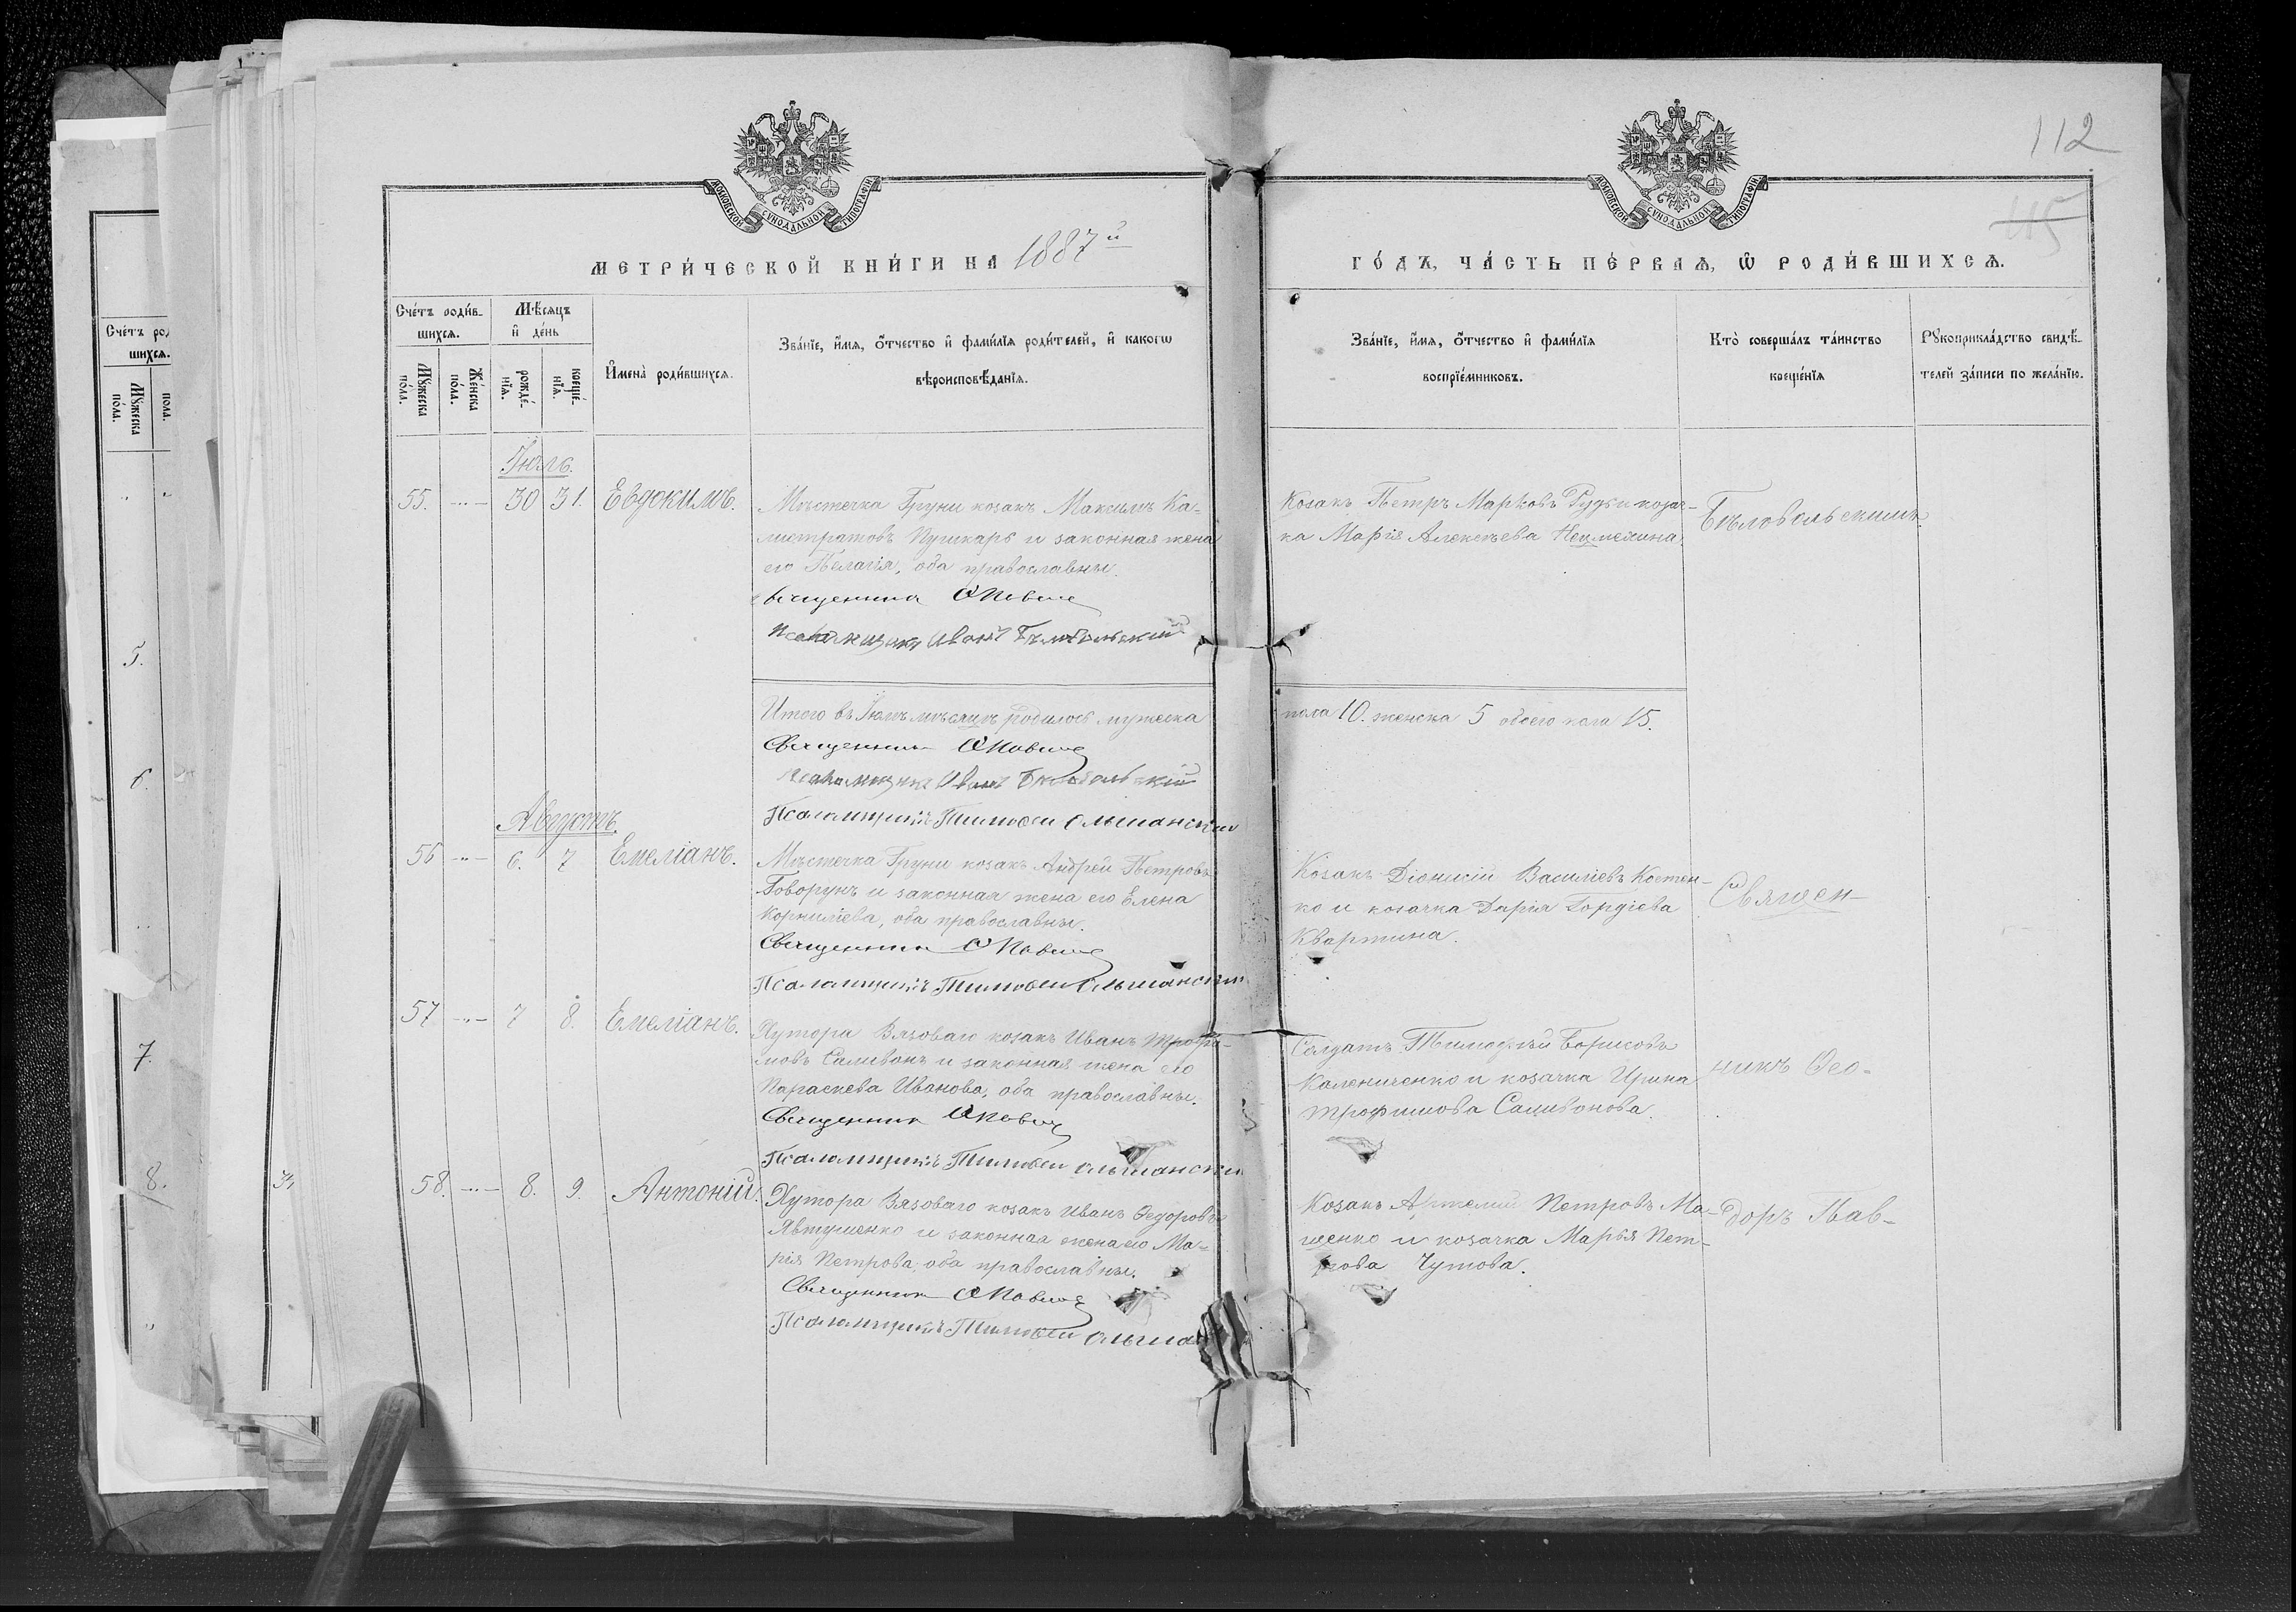 112
115
МОСКОВСКОЙ СѴНОДАЛЬНОЙ ТИПОГРАФІИ
МОСКОВСКОЙ СѴНОДАЛЬНОЙ ТИПОГРАФІИ
МЕТРИ́ЧЕСКОЙ КНИ́ГИ НА 1887й
ГО́ДЪ, ЧА́СТЬ ПЕ́РВАѦ, Ѽ РОДИ́ВШИХСѦ.
Сче́тъ роди́в-
шихсѧ.
Мꙋ́жеска по́ла.
Же́нска по́ла.
Мѣ́сѧцъ
и҆ де́нь
рожде́-
нїѧ.
креще́-
нїѧ.
И҆мена̀ роди́вшихсѧ.
Зва́нїе, и҆́мѧ, ѻ҆́тчество и҆ фами́лїѧ роди́телей, и҆ какогѡ
вѣроисповѣ́данїѧ.
Зва́нїе, и҆́мѧ, ѻ҆́тчество и҆ фами́лїѧ
воспрїе́мниковъ.
Кто̀ соверша́лъ та́инство
креще́нїѧ
Рꙋкоприкла́дство свидѣ́-
телей за́писи по жела́нїю.
Сче́тъ ро
шихсѧ.
Мꙋ́жеска по́ла.
пола.
5.
6.
7.
8.
Іюль.
55. 30 31. Евдокимъ.
Мѣстечка Груни козакъ Максимъ Ка-
листратовъ Пушкарь и законная жена
его Пелагія, оба православны.
Священникъ
Псаломщикъ Иванъ Бѣловольскій
Козакъ Петръ Марковъ Рудь и козач-
ка Марія Алексѣева
Бѣловольскимъ
Итого въ Іюлѣ мѣсяцѣ родилось мужеска
пола 10. женска 5 обоего пола 15.
Священникъ
Псаломщикъ Иванъ Бѣловольскій
Псаломщикъ Тимофей Ольшанскій
Августъ.
56 6. 7 Емеліанъ.
Мѣстечка Груни козакъ Андрей Петровъ
Говорунъ и законная жена его Елена
Корниліева, оба православны.
Священникъ
Псаломщикъ Тимофей Ольшанскій
Козакъ Діонисій Василіевъ Костен-
ко и козачка Дарія Гордіева
Квартина.
Священ-
57 7 8. Емеліанъ.
Хутора Вязоваго козакъ Иванъ Трофи-
мовъ Саливонъ и законная жена его
Параскева Иванова, оба православны.
Священникъ
Псаломщикъ Тимофей Ольшанскій
Солдатъ Тимофей Борисовъ
Калениченко и козачка Ирина
Трофимова Саливонова.
никъ Ѳео-
58. 8. 9. Антоній.
Хутора Вязоваго козакъ Иванъ Ѳедоровъ
Явтушенко и законная жена его Ма-
рія Петрова, оба православны.
Священникъ
Псаломщикъ Тимофей Ольша
Козакъ Петровъ Ма-
шенко и козачка Марья Пет-
рова Чутова.
доръ Пав-